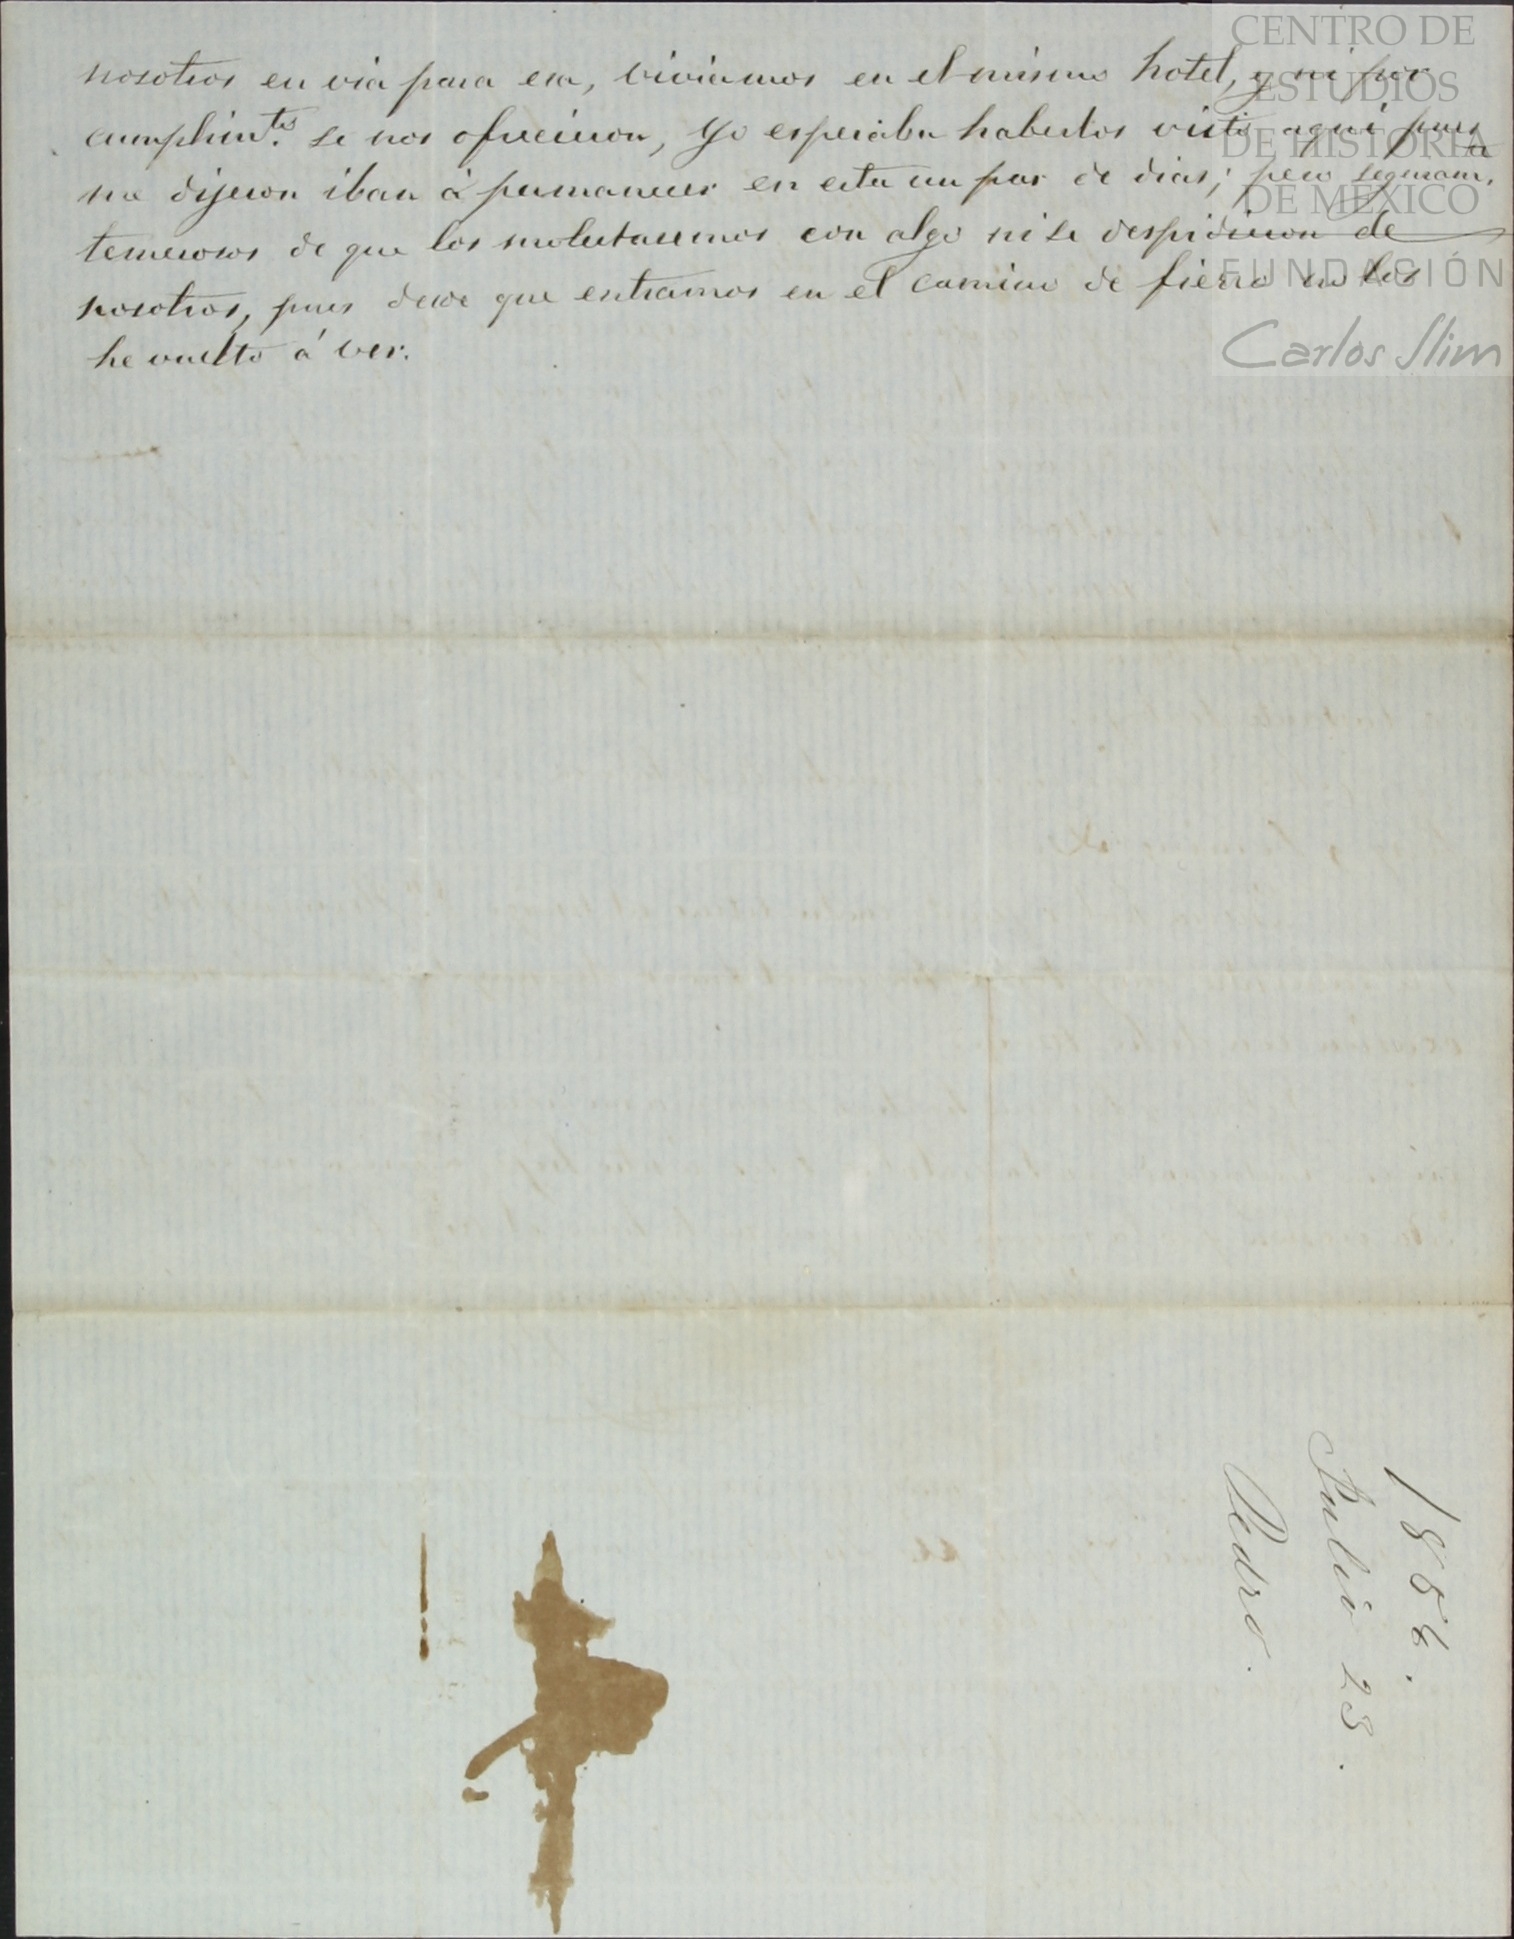 nosotros en via para esa, viviamos en el mismo hotel, y ni por
cumplim.to se nos ofrecieron, yo esperaba haberlos visto aqui pues
me dijeron iban á permanecer en esta un par de dias; pero seguram.te
temerosos de que los molestasemos con algo ni se despidieron de
nosotros, pues desde que entramos en el camino de fierro no los
he vuelto á ver.
CENTRO DE
ESTUDIOS
DE HISTORIA
DE MÉXICO
FUNDACIÓN
Carlos Slim
Julio 23.
Pedro.